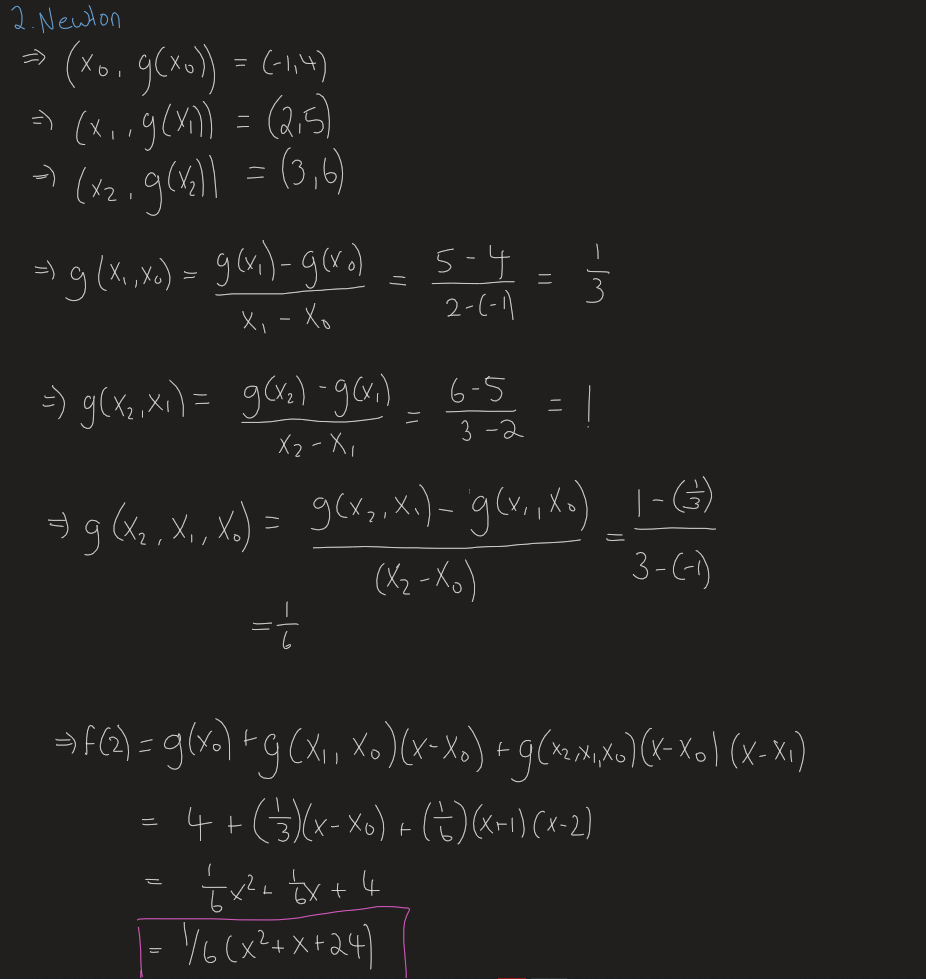 2. Newton
⇒ (x₀, g(x₀)) = (-1,4)
⇒ (x₁, g(x₁)) = (2,5)
⇒ (x₂, g(x₂)) = (3,6)
⇒ g(x₁,x₀) = (g(x₁) - g(x₀))/(x₁ - x₀) = (5-4)/(2-(-1)) = 1/3
⇒ g(x₂,x₁) = (g(x₂) - g(x₁))/(x₂ - x₁) = (6-5)/(3-2) = 1
⇒ g(x₂, x₁, x₀) = (g(x₂,x₁) - g(x₁,x₀))/(x₂-x₀) = (1-(1/3))/(3-(-1))
= 1/6
⇒ f(2) = g(x₀) + g(x₁, x₀)(x-x₀) + g(x₂,x₁,x₀)(x-x₀)(x-x₁)
= 4 + (1/3)(x-x₀) + (1/6)(x+1)(x-2)
= 1/6x² + 1/6x + 4
= 1/6(x²+x+24)